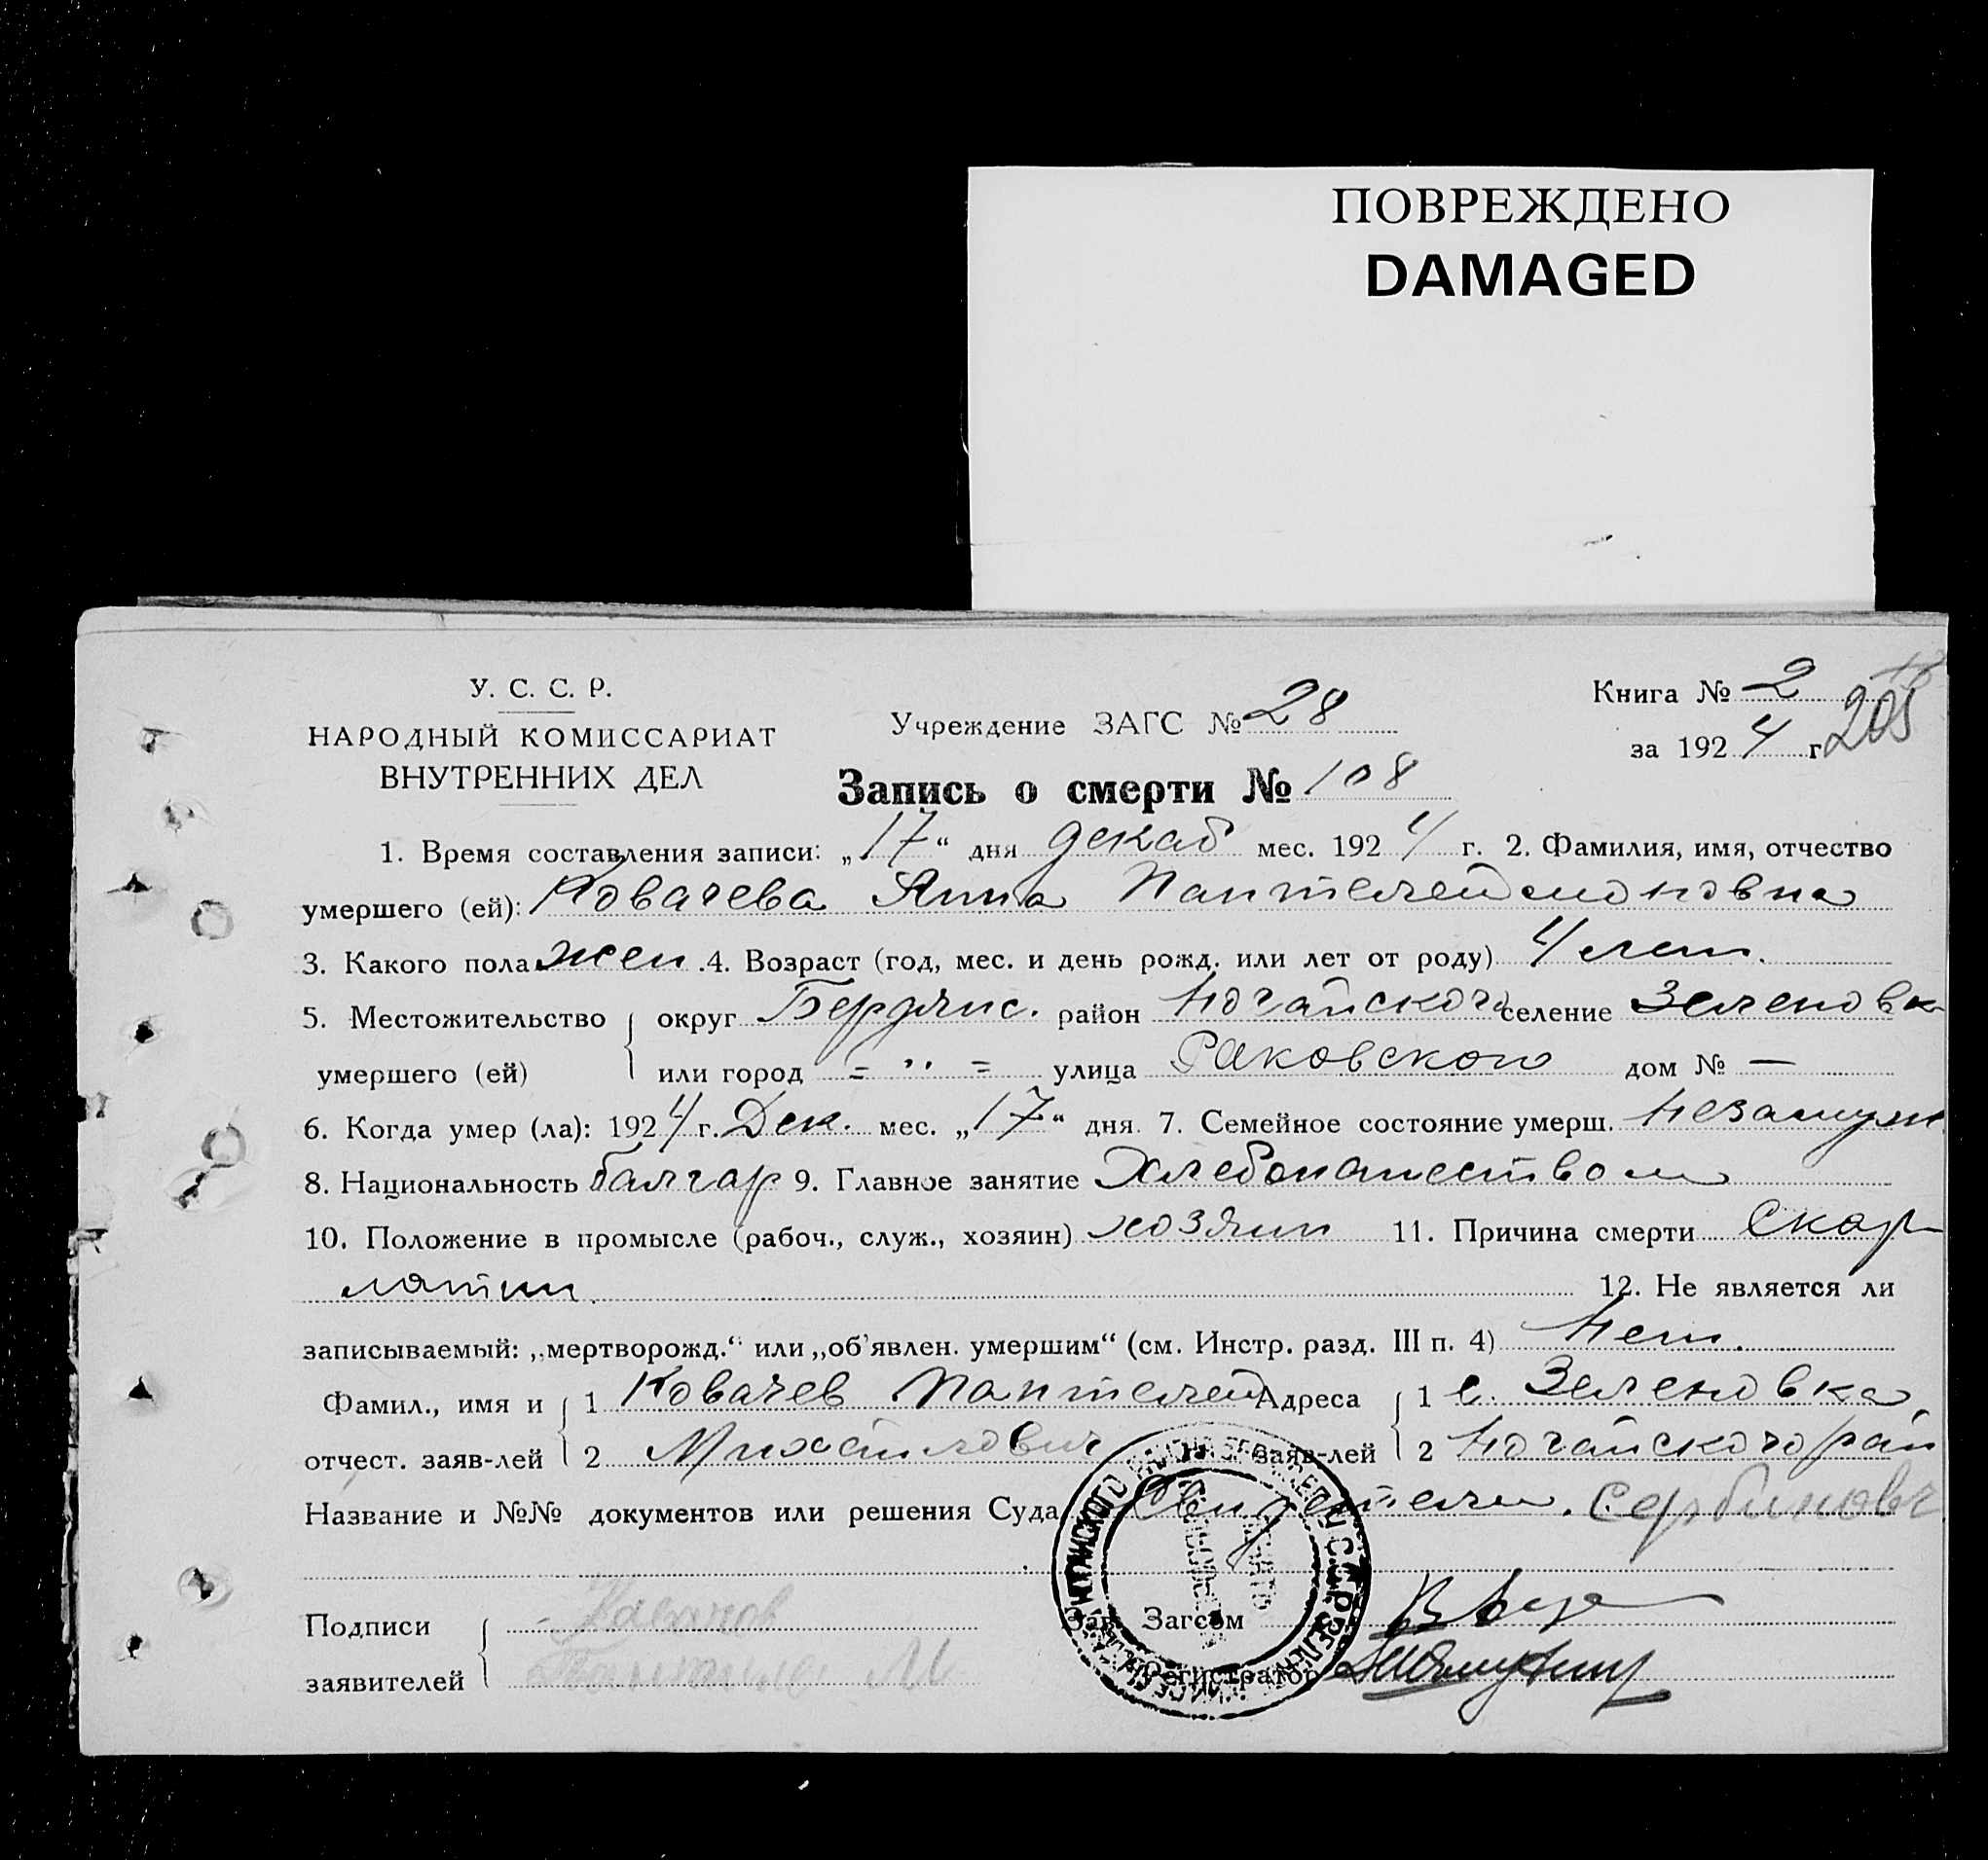 ПОВРЕЖДЕНО
DAMAGED
У. С. С. Р.
НАРОДНЫЙ КОМИССАРИАТ
ВНУТРЕННИХ ДЕЛ
Учреждение ЗАГС № 28
Книга № 2
за 1924 г. 205
Запись о смерти № 108
1. Время составления записи: „17“ дня декаб мес. 1924 г. 2. Фамилия, имя, отчество
умершего (ей): Ковачева Анна Пантелеймоновна
3. Какого пола жен. 4. Возраст (год, мес. и день рожд. или лет от роду) 4 лет.
5. Местожительство округ Бердянс. район Ногайского селение Зеленовк
умершего (ей) или город = " = улица Раковского дом № —
6. Когда умер (ла): 1924 г. Дек. мес. „17“ дня. 7. Семейное состояние умерш. незамуж
8. Национальность балгар 9. Главное занятие Хлебопашеством
10. Положение в промысле (рабоч., служ., хозяин) хозяин 11. Причина смерти скар
латин. 12. Не является ли
записываемый: „мертворожд.“ или „об'явлен. умершим“ (см. Инстр. разд. III п. 4) Нет.
Фамил., имя и 1 Ковачев Пантелей Адреса 1 с. Зеленовка,
отчест. заяв-лей 2 Михайлович заяв-лей 2 Ногайского рай
Название и №№ документов или решения Суда
Подписи Ковачов Зав. Загсом
заявителей Регистратор